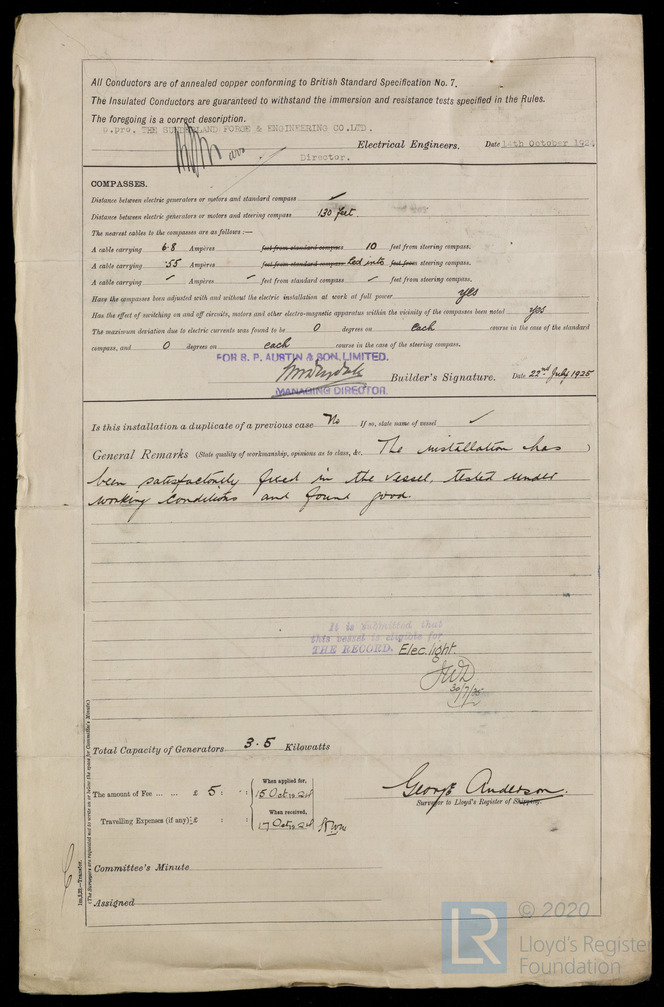 All Conductors are of annealed copper conforming to British Standard Specification No. 7.
The Insulated Conductors are guaranteed to withstand the immersion and resistance tests specified in the Rules.
The foregoing is a correct description.
p.pro. THE SUNDERLAND FORGE & ENGINEERING CO.LTD.
Electrical Engineers. Date 14th October 192
Director.
COMPASSES.
Distance between electric generators or motors and standard compass ✓
Distance between electric generators or motors and steering compass 130 feet.
The nearest cables to the compasses are as follows :—
A cable carrying 6.8 Ampères feet from standard compass 10 feet from steering compass.
A cable carrying .55 Ampères feet from standard compass led into feet from steering compass.
A cable carrying ✓ Ampères ✓ feet from standard compass ✓ feet from steering compass.
Have the compasses been adjusted with and without the electric installation at work at full power yes
Has the effect of switching on and off circuits, motors and other electro-magnetic apparatus within the vicinity of the compasses been noted yes
The maximum deviation due to electric currents was found to be 0 degrees on each course in the case of the standard
compass, and 0 degrees on each course in the case of the steering compass.
FOR S. P. AUSTIN & SON, LIMITED.
Builder's Signature. Date 22nd July 1925
MANAGING DIRECTOR.
Is this installation a duplicate of a previous case No If so, state name of vessel ✓
General Remarks (State quality of workmanship, opinions as to class, &c. The installation has )
been satisfactorily fixed in the vessel, tested under
working conditions and found good.
It is submitted that
this vessel is eligible for
THE RECORD. Elec. light.
JWD
30/7/25
Total Capacity of Generators 3.5 Kilowatts
The amount of Fee ... ... £ 5 : : When applied for, 15 Oct 1924
Travelling Expenses (if any) £ : : When received, 17 Oct 1924
George Anderson.
Surveyor to Lloyd's Register of Shipping.
Committee's Minute
Assigned
Im.1.25.—Transfer.
(The Surveyors are requested not to write on or below the space for Committee's Minute.)
LR © 2020
Lloyd's Register
Foundation